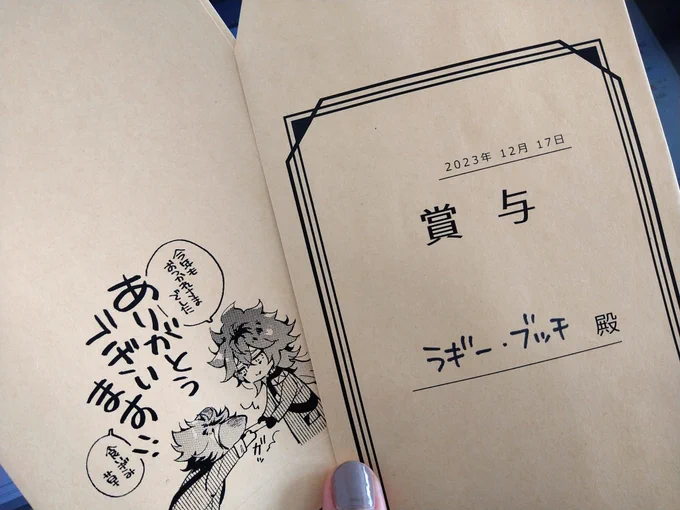 2023年 12月 17日
賞 与
ラギー・ブッチ 殿
今年も
おつかれさま
でした
ありがとう
ございます!!
食いぎみ
草
ガッ